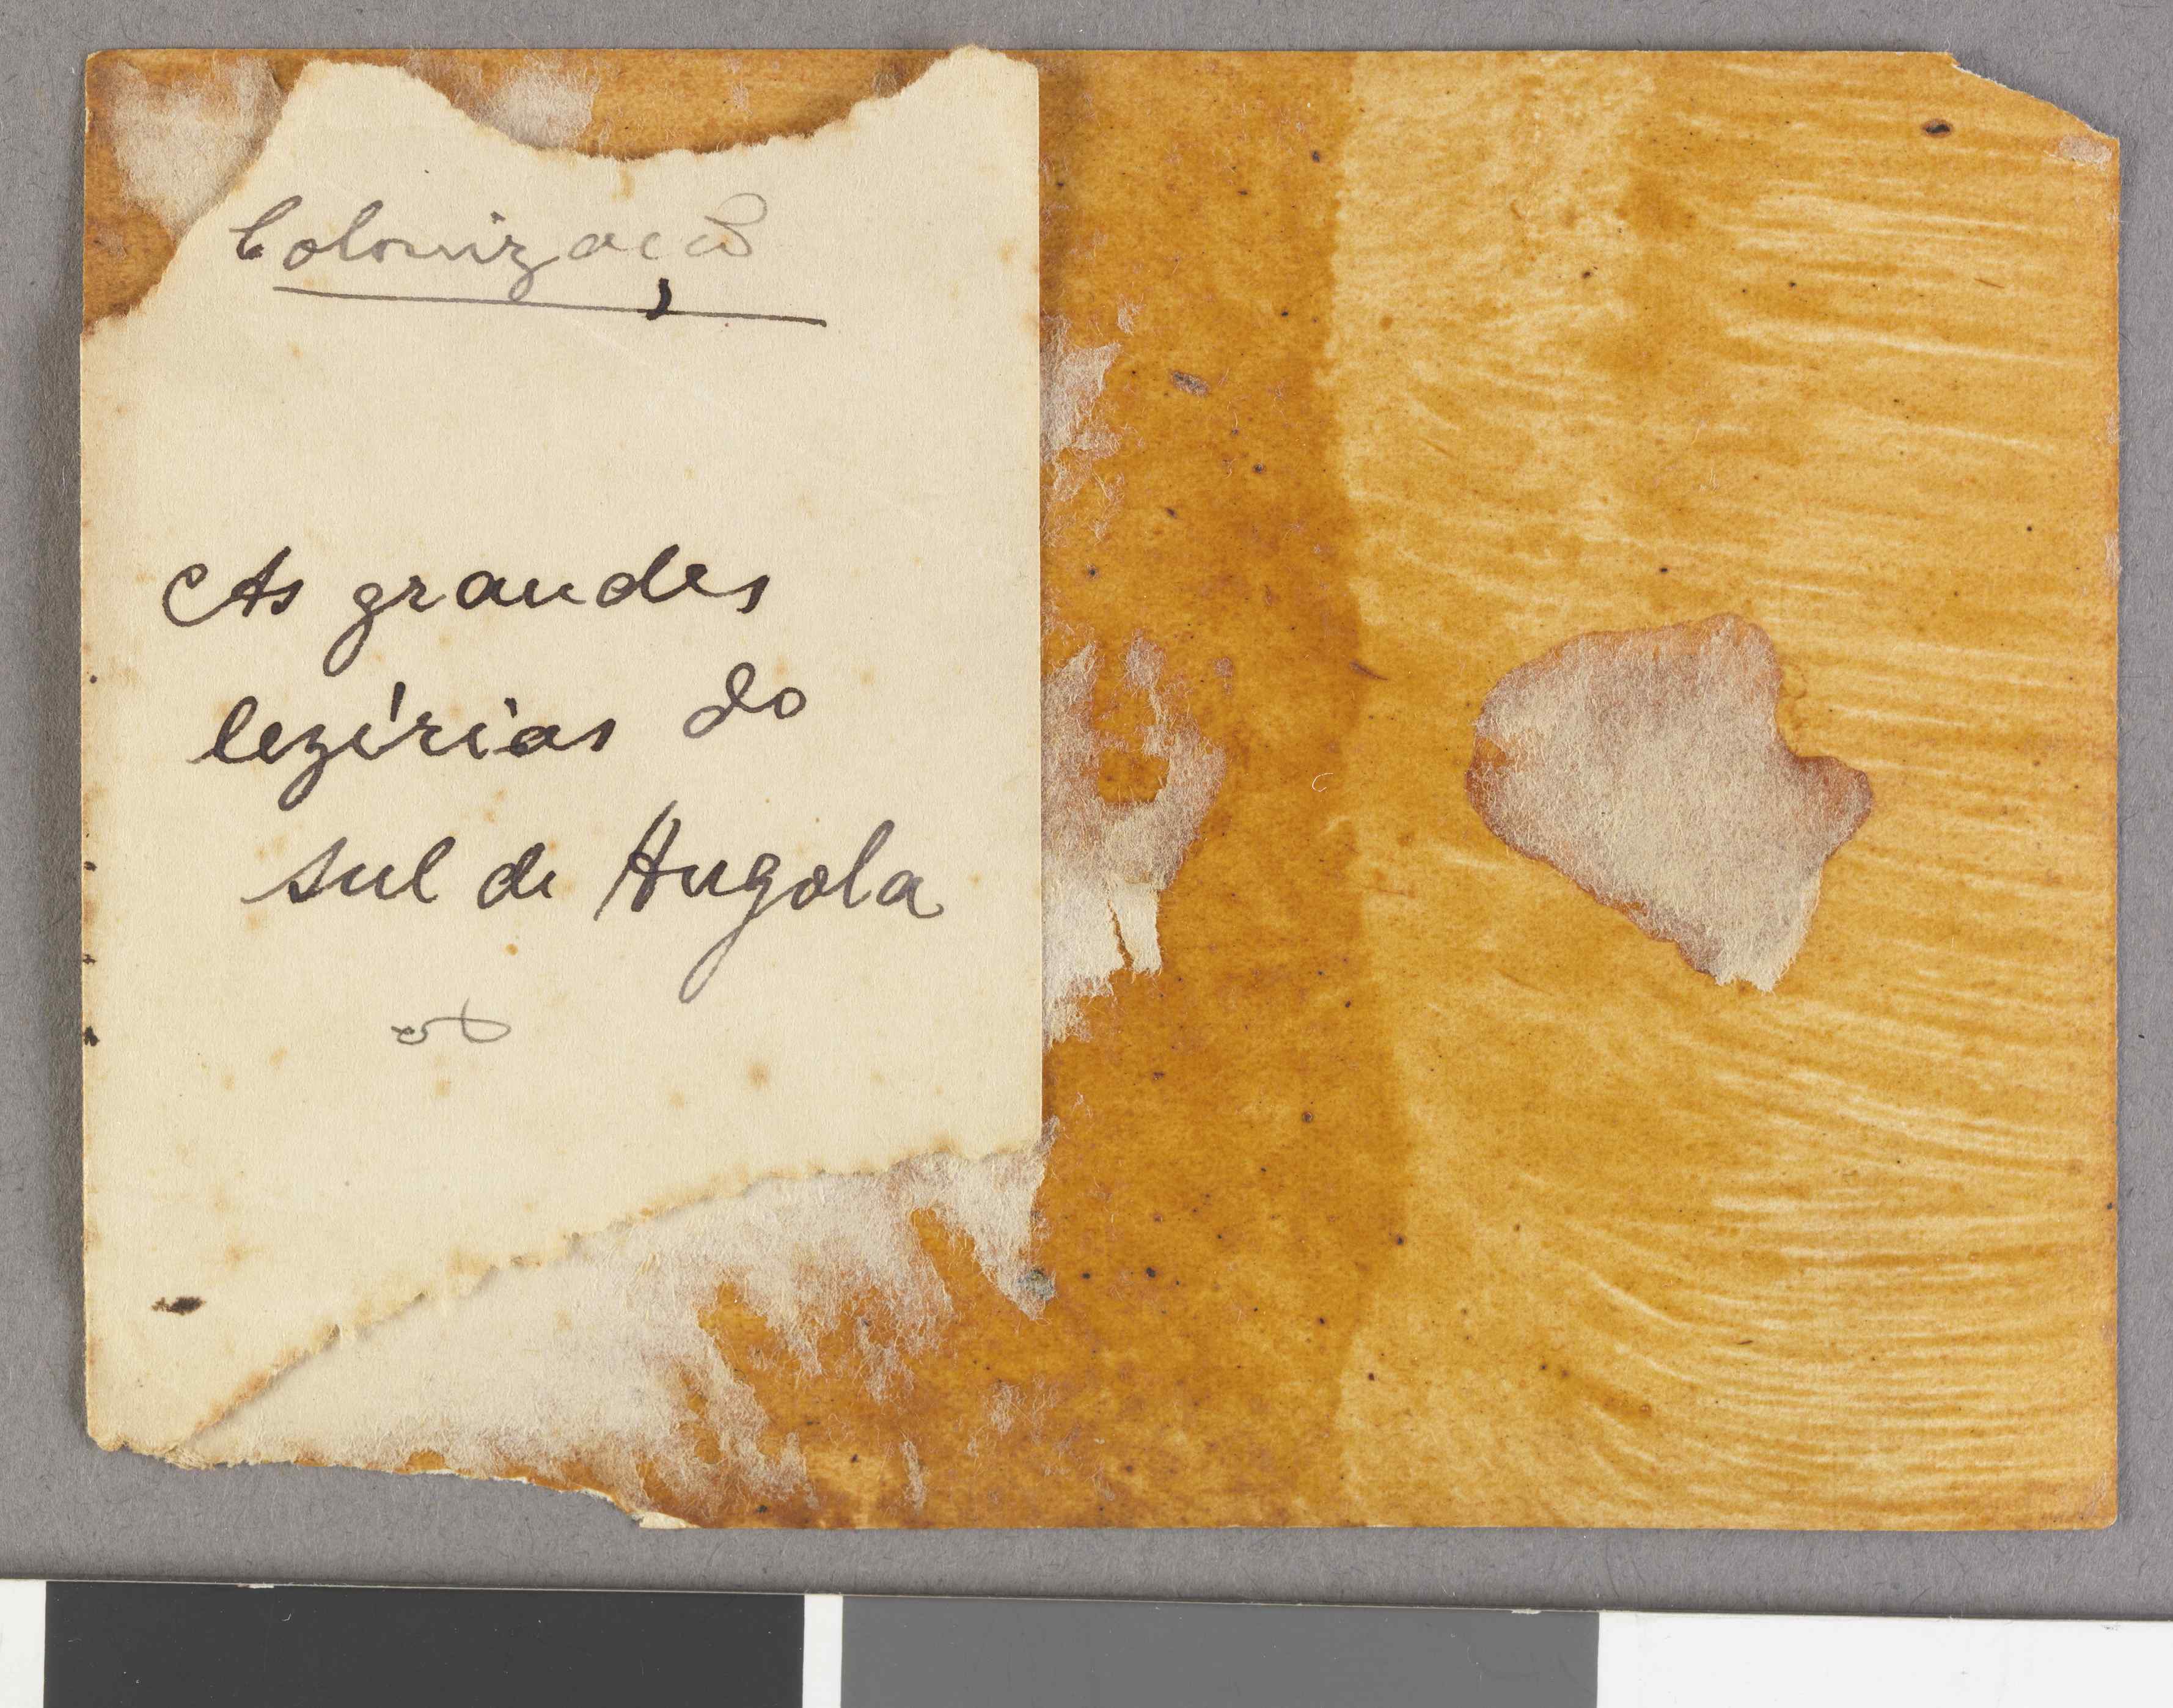 Colonização
As grandes
lezírias do
sul de Angola